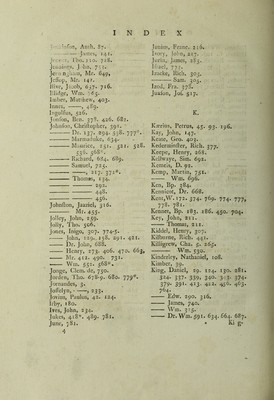 INDEX
Arch. 87.
James, 141.
Tho. 210. 718.
John, 725.
Mr. 649.
Jessop, Mr. 141.
Jacob, 657. 716.
Mr.
Imber, Matthew, 403.
489.
Ingulfus, 516.
Bro. 378. 426. 682.
Johnson, Christopher, 591.
Dr. 137. 294. 558. 777*.
Marmaduke, 634.
Maurice, 231. 521. 528.
536. 568*.
Richard, 684. 689.
Samuel, 725.
, 217. 372*.
Thomas, 134.
292.
448.
456.
Johnston, Jasriel, 316.
Mr. 455.
Jolley, John, 239.
Jolly, Tho. 506.
Jones, Inigo, 307. 774-5.
John, 129. 158. 291. 421.
Dr. John, 688.
Henry, 273. 406. 470. 663.
Mr. 412. 490. 731.
Wm. 551. 568*.
Jonge, Clem. de, 750.
Jorden, Tho. 678-9. 680. 779*.
Jornandes, 3.
Josselyn, , 233.
Jovius, Paulus, 42. 124.
Irby, 180.
Ives, John, 134.
Jukes, 418*. 489. 781.
June, 781.
4
Junior, Franc. 216.
Ivory, John, 217.
Jurin, James, 263.
773.
Rich. 303.
Sam. 303.
Fra. 378.
Juxton, Jof. 517.
K.
Petrus, 45. 93. 196.
Kay, John, 147.
Keate, Geo. 403.
Kedermister, Rich. 377.
Keepe, Henry, 268.
Keilwaye, Sim. 692.
Kemis, D. 91.
Kemp, Martin, 751.
Wm. 696.
Ken, Bp. 384.
Kennicot, Dr. 668.
Kent, W. 172. 374. 769. 774. 777,
778. 781.
Kennett, Bp. 185. 186. 450. 704.
Key, John, 211.
Thomas, 211.
Kiddel, Henry, 307.
Kilburne, Rich. 441.
Killigrew, Cha. 2. 263.
Wm. 550.
Kinderley, Nathaniel, 208.
Kimber, 59.
King, Daniel, 29. 124. 130. 281.
324. 337. 339. 340. 373. 374.
379. 391. 413. 422. 456. 463.
764.
Edw. 290. 316.
James, 740.
Wm. 315.
Dr. Wm. 591. 634. 664. 687.
Kig-